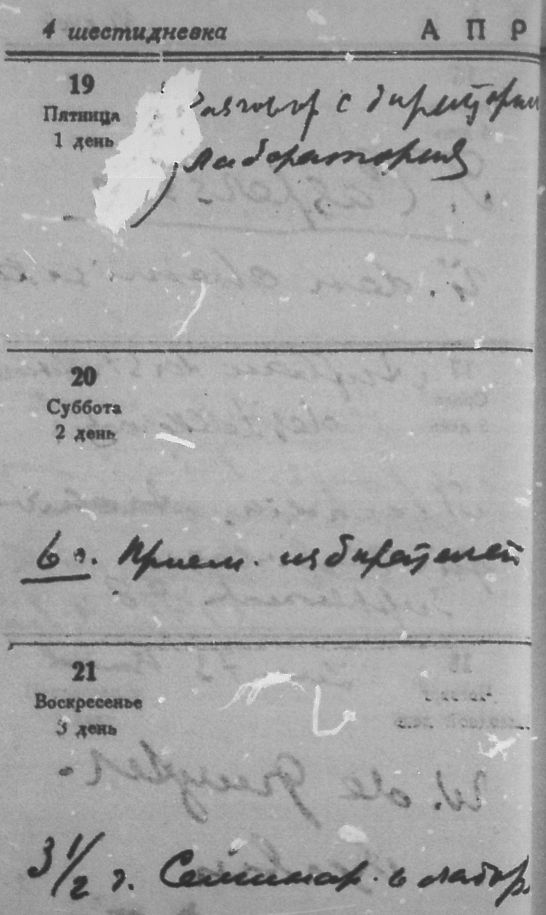 4 шестидневка
А П Р
19
Пятница
1 день
Разговор с директором
лаборатория
20
Суббота
2 день
6 ч. Прием. избирателей
21
Воскресенье
3 день
3 1/2 ч. Семинар. в лабор.